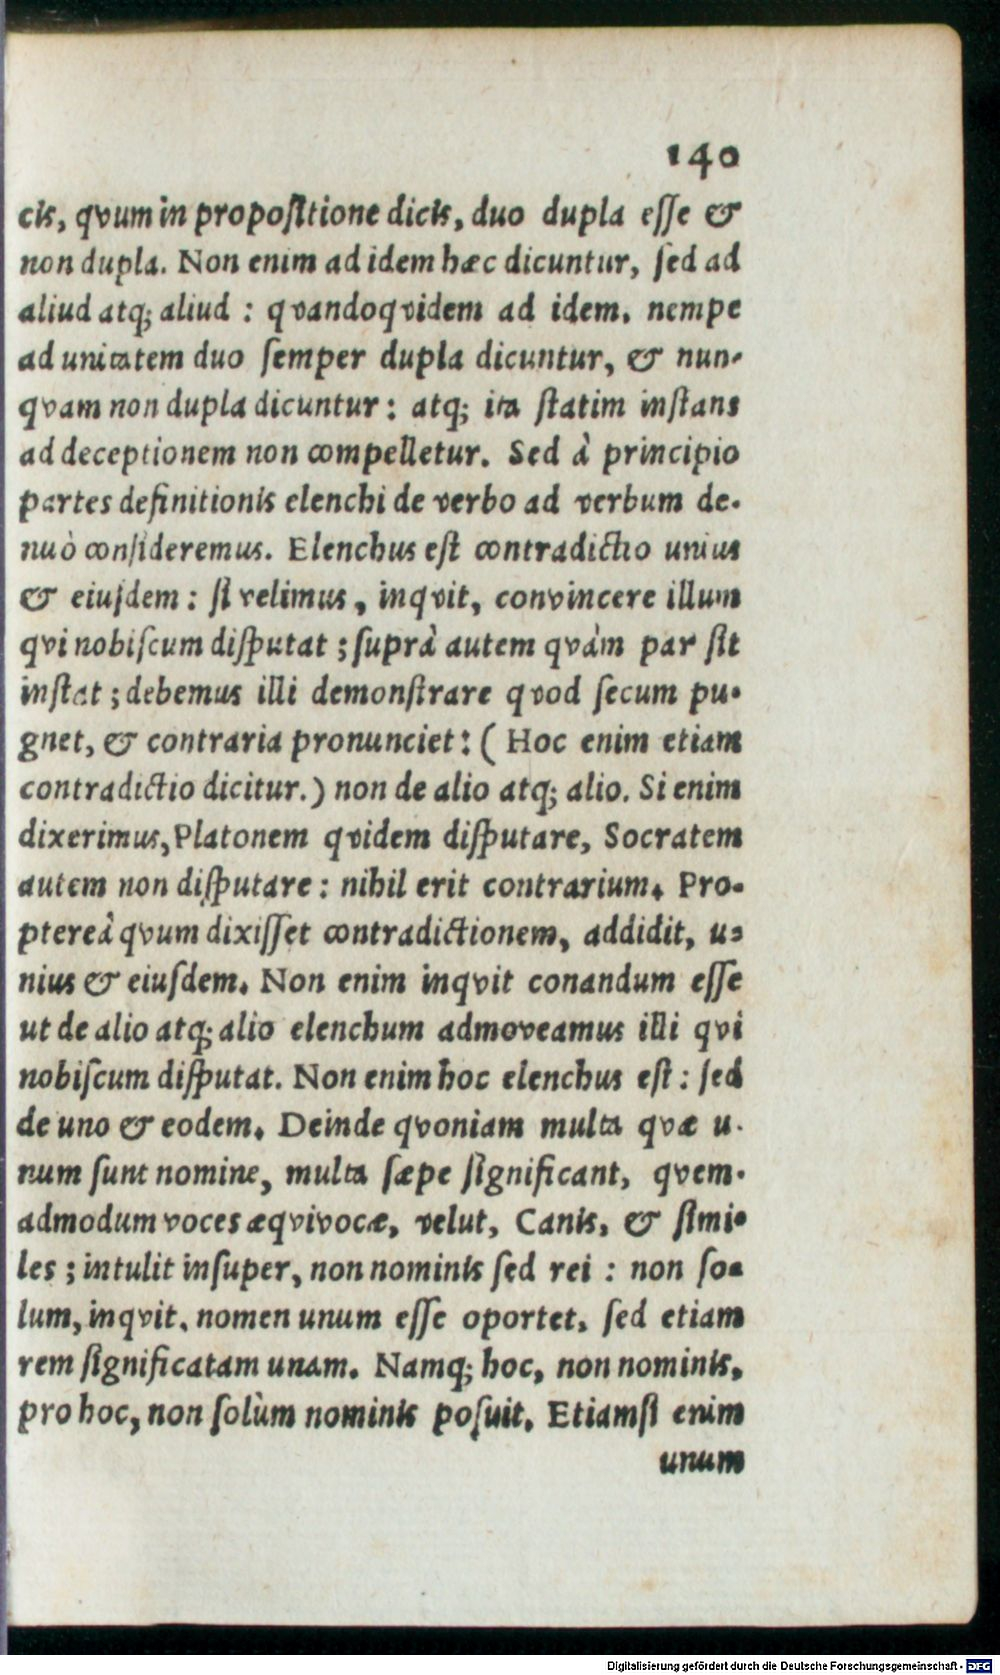 140
cis, qvum in propoſitione dicis, duo dupla eſſe &
non dupla. Non enim ad idem hæc dicuntur, ſed ad
aliud atq; aliud : qvandoqvidem ad idem, nempe
ad unitatem duo ſemper dupla dicuntur, & nun-
qvam non dupla dicuntur : atq; ita ſtatim inſtans
ad deceptionem non compelletur. Sed à principio
partes definitionis elenchi de verbo ad verbum de-
nuò conſideremus. Elenchus eſt contradictio unius
& eiuſdem : ſi velimus, inqvit, convincere illum
qvi nobiſcum diſputat ; ſuprà autem qvàm par ſit
inſtat ; debemus illi demonſtrare qvod ſecum pu-
gnet, & contraria pronunciet : ( Hoc enim etiam
contradictio dicitur.) non de alio atq; alio. Si enim
dixerimus, Platonem qvidem diſputare, Socratem
autem non diſputare : nihil erit contrarium. Pro-
ptereà qvum dixiſſet contradictionem, addidit, u-
nius & eiuſdem. Non enim inqvit conandum eſſe
ut de alio atq; alio elenchum admoveamus illi qvi
nobiſcum diſputat. Non enim hoc elenchus eſt : ſed
de uno & eodem. Deinde qvoniam multa qvæ u-
num ſunt nomine, multa ſæpe ſignificant, qvem-
admodum voces æqvivocæ, velut, Canis, & ſimi-
les ; intulit inſuper, non nominis ſed rei : non ſo-
lum, inqvit, nomen unum eſſe oportet, ſed etiam
rem ſignificatam unam. Namq; hoc, non nominis,
pro hoc, non ſolùm nominis poſuit. Etiamſi enim
unum
Digitalisierung gefördert durch die Deutsche Forschungsgemeinschaft - DFG